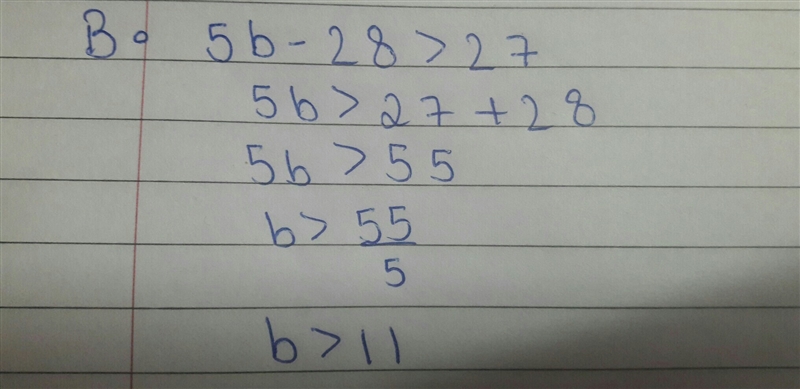 B. 5b - 28 > 27
5b > 27 + 28
5b > 55
b > 55/5
b > 11